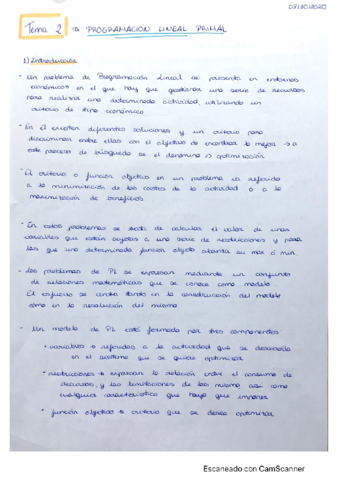 07/10/2020
Tema 2 ⇒ PROGRAMACION LINEAL PRIMAL
1) Introducción
- Un problema de Programación Lineal se presenta en entornos
económicos en el que hay que gestionar una serie de recursos
para realizar una determinada actividad, utilizando un
criterio de tipo económico
- En él existen diferentes soluciones y un criterio para
discriminar entre ellas con el objetivo de encontrar la mejor → a
este proceso de búsqueda se le denomina optimización
- El criterio o función objetivo en un problema va referido
a la minimización de los costes de la actividad o a la
maximización de beneficios
- En estos problemas se trata de calcular el valor de unas
variables que están sujetas a una serie de restricciones y para
las que una determinada función objeto alcanza su max o min.
- Los problemas de PL se expresan mediante un conjunto
de relaciones matemáticas que se conoce como modelo
El esfuerzo se centra tanto en la construcción del modelo
como en la resolución del mismo
- Un modelo de PL está formado por tres componentes:
• variables → referidas a la actividad que se desarrolla
en el sistema que se quiere optimizar
• restricciones → expresan la relación entre el consumo de
recursos, y las limitaciones de los mismos así como
cualquier característica que haya que imponer
• función objetivo → criterio que se desea optimizar
Escaneado con CamScanner